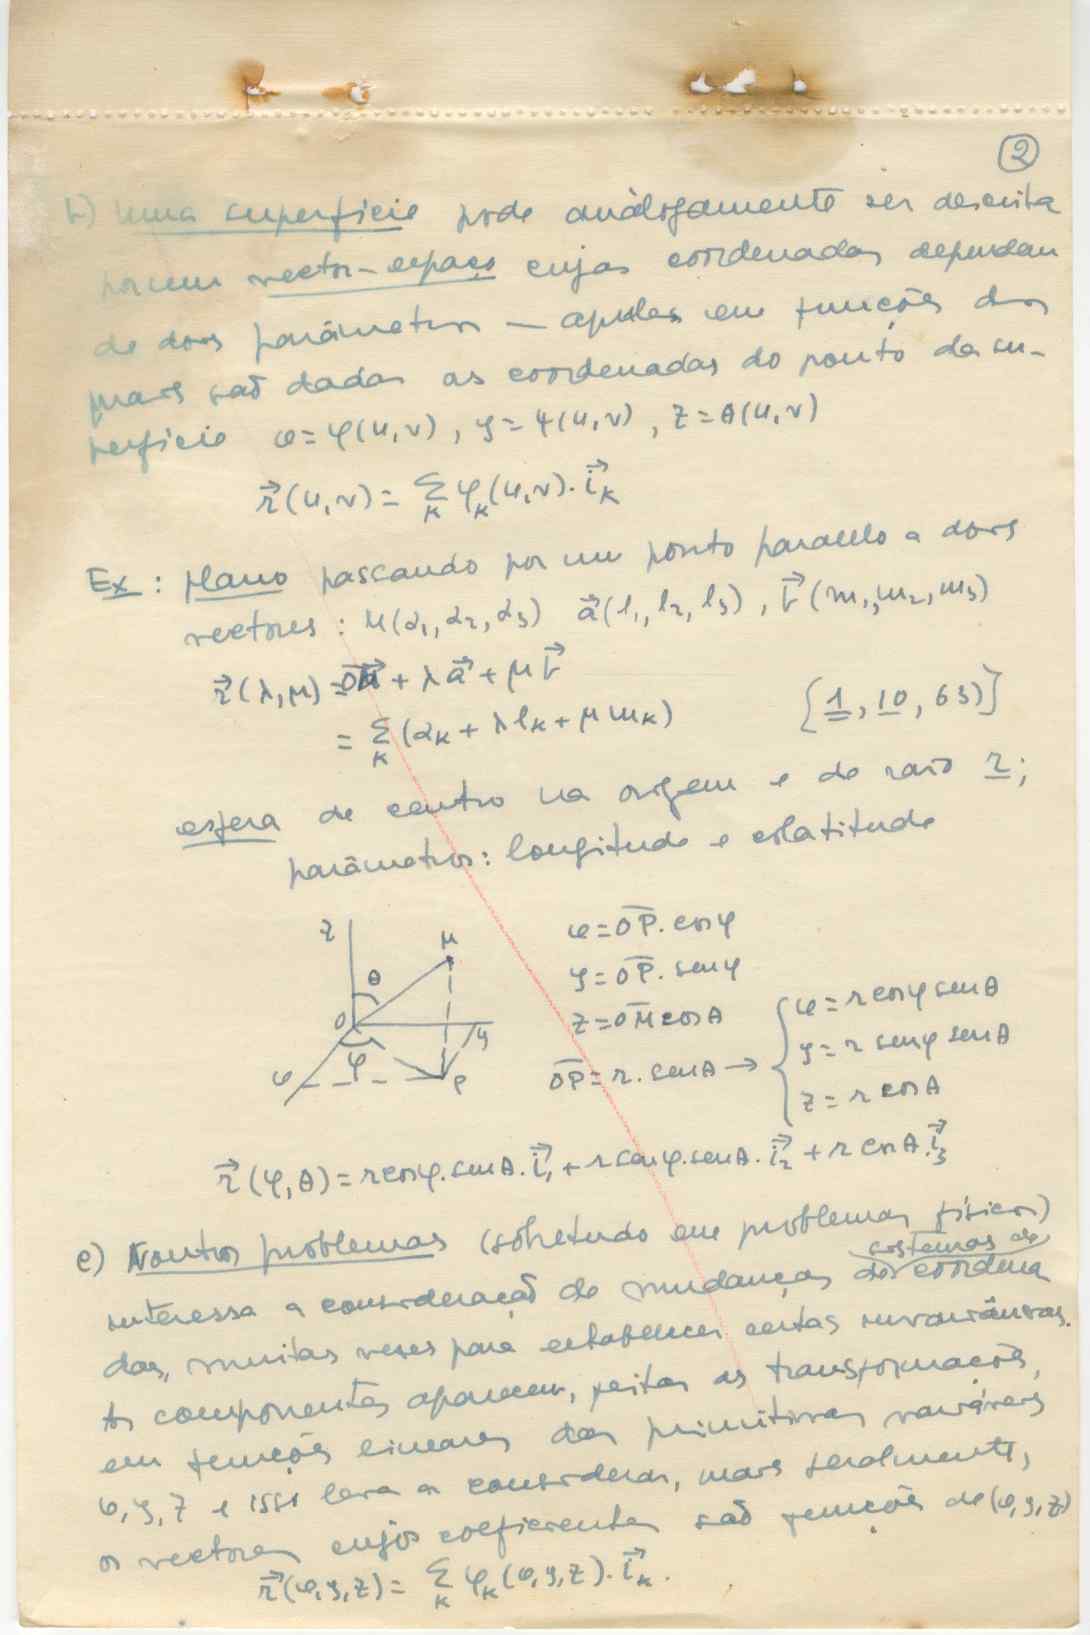 ②
b) uma superfície pode anàlogamente ser descrita
por um vector-espaço cujas coordenadas dependem
de dois parâmetros — aqueles em funções dos
quais são dadas as coordenadas do ponto da su-
perfície x=φ(u,v), y=ψ(u,v), z=θ(u,v)
r⃗(u,v) = Σ_k φ_k(u,v). i⃗_k
Ex: plano passando por um ponto paralelo a dois
vectores: M(α₁, α₂, α₃) a⃗(l₁, l₂, l₃), b⃗(m₁, m₂, m₃)
r⃗(λ,μ) = O⃗M + λa⃗ + μb⃗
= Σ_k (α_k + λl_k + μm_k) [1, 10, 63)]
esfera de centro na origem e de raio r;
parâmetros: longitude e colatitude
z
M
θ
O
y
φ
x
P
x = OP. cosφ
y = OP. senφ
z = OM cosθ
OP = r. senθ →
{ x = r cosφ senθ
y = r senφ senθ
z = r cosθ
r⃗(φ,θ) = r cosφ. senθ. i⃗₁ + r senφ. senθ. i⃗₂ + r cosθ. i⃗₃
c) Noutros problemas (sobretudo em problemas físicos)
sistemas de
interessa a consideração de mudanças de coordena
das, muitas vezes para estabelecer certas invariâncias.
As componentes aparecem, feitas as transformações,
em funções lineares das primitivas variáveis
x, y, z e isso leva a considerar, mais geralmente,
os vectores cujos coeficientes são funções de (x, y, z)
r⃗(x,y,z) = Σ_k φ_k(x,y,z). i⃗_k.